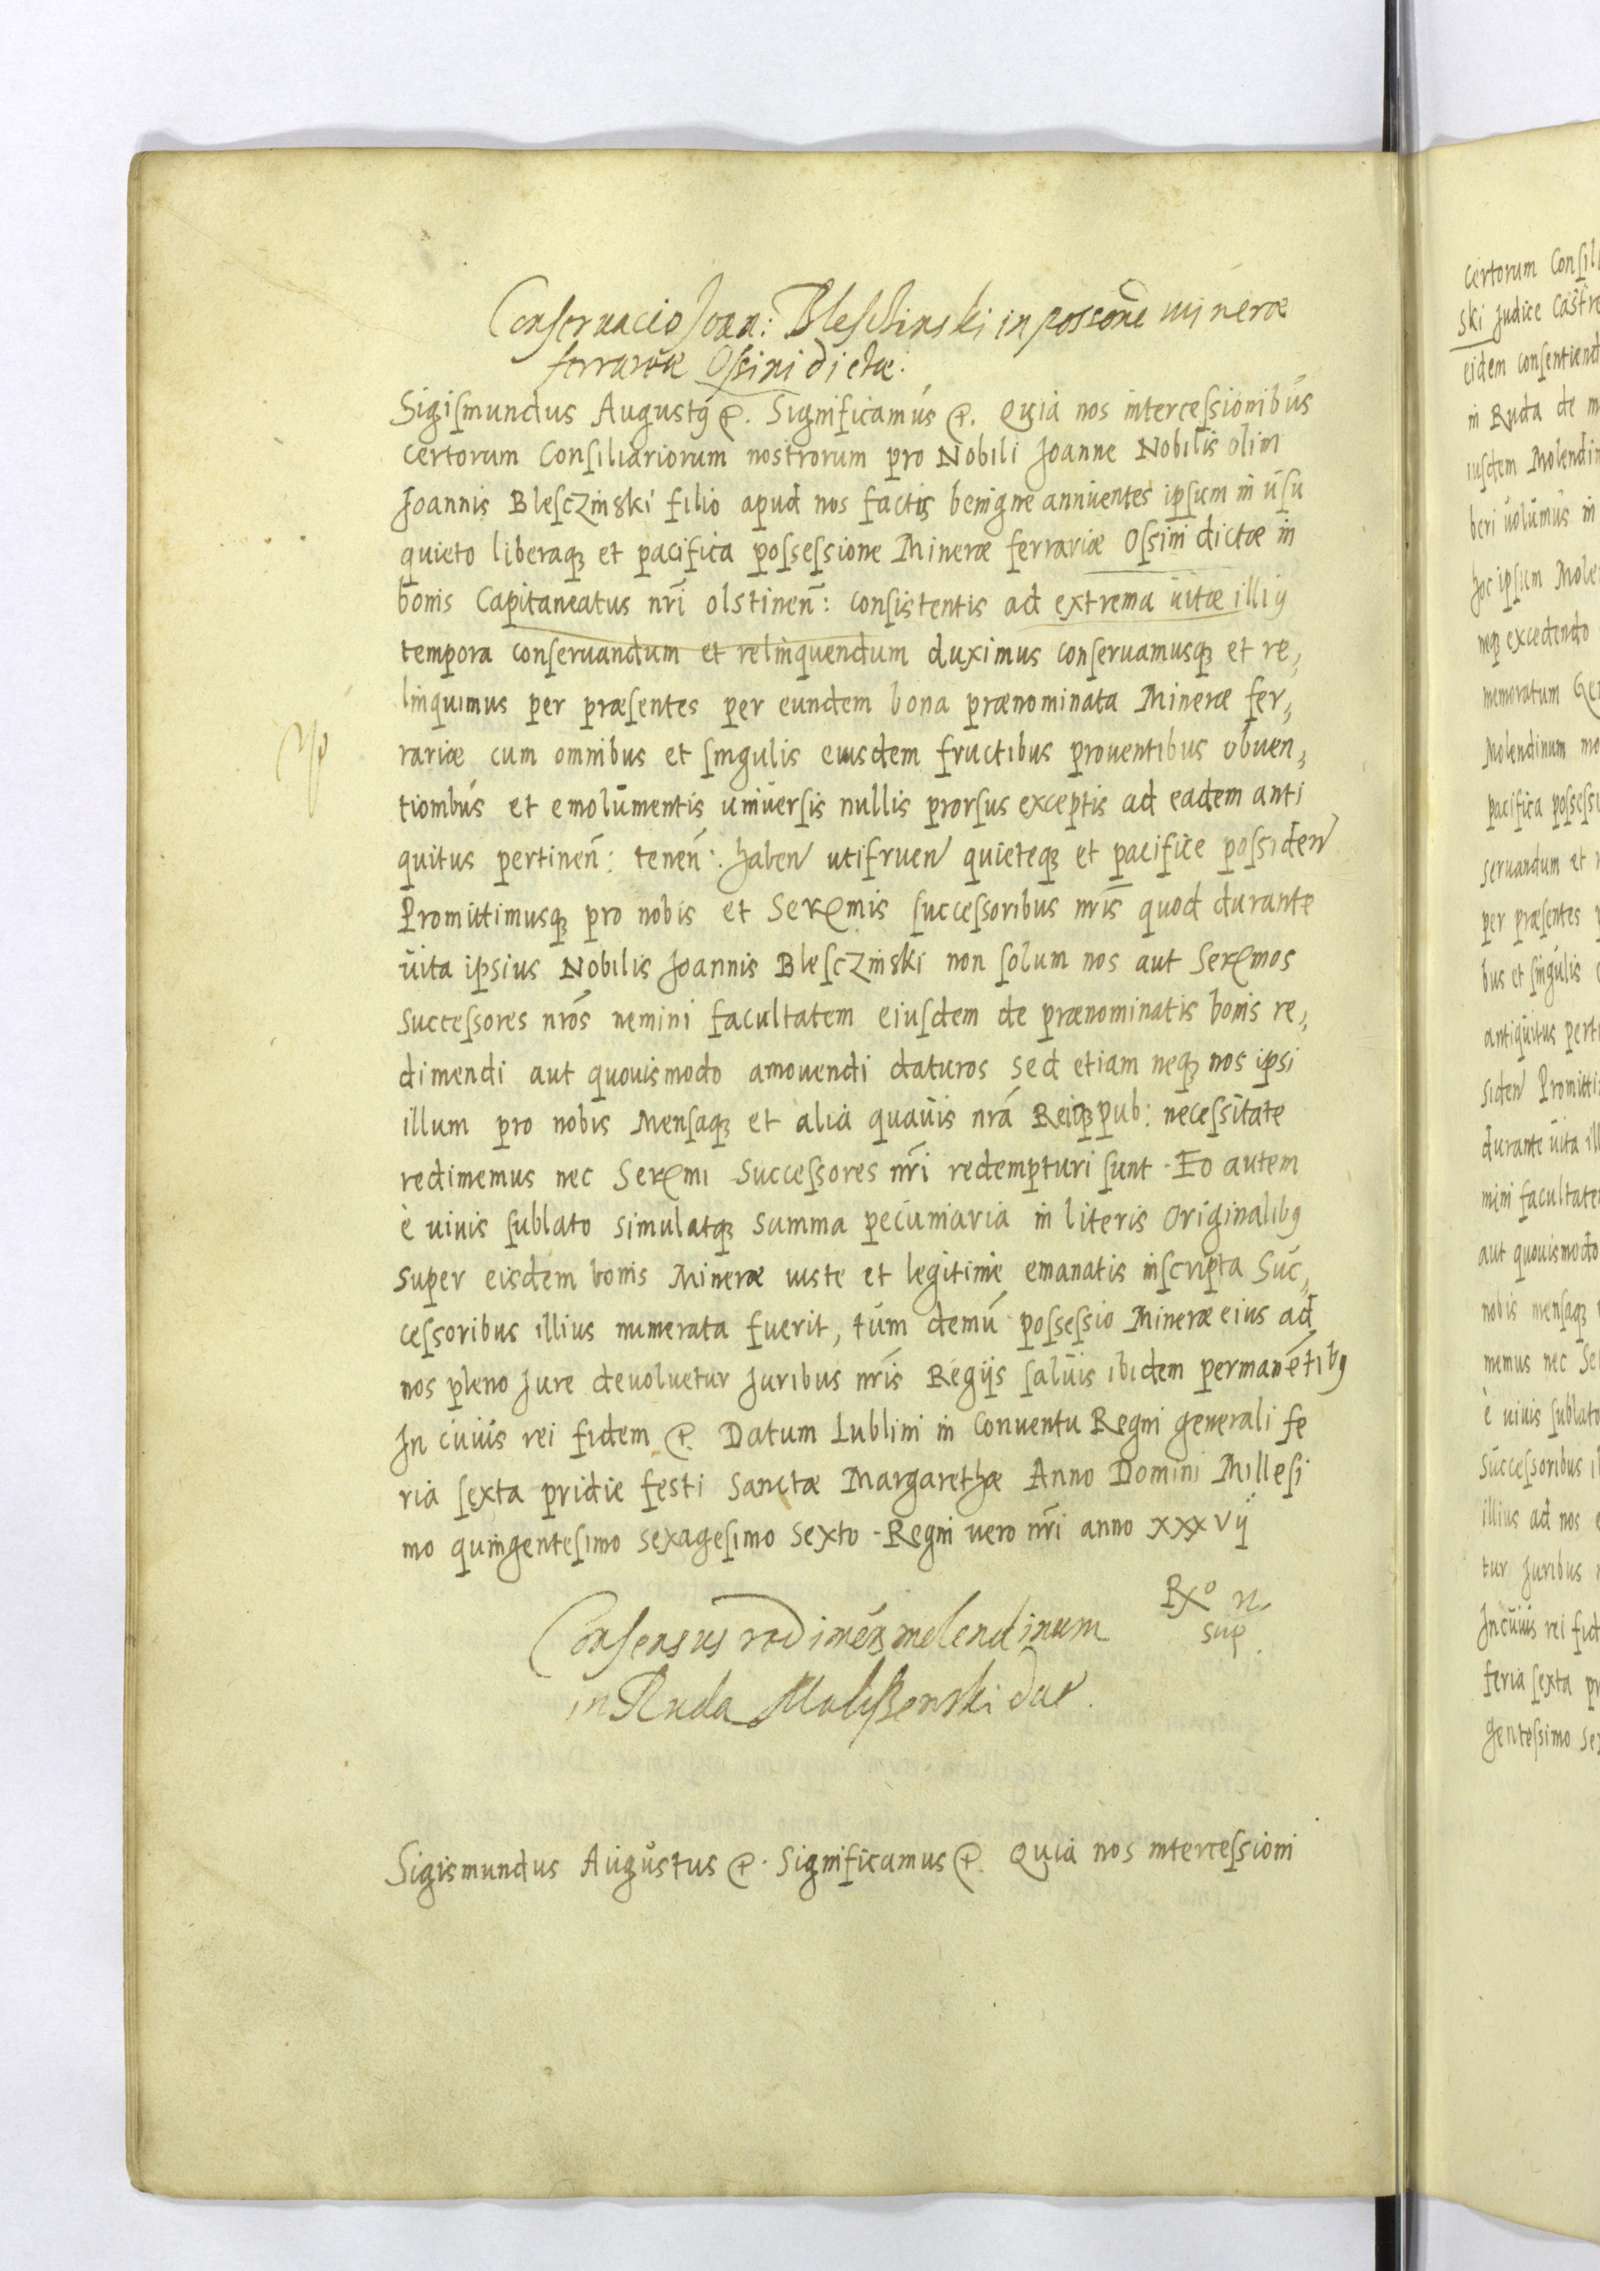 Conservacio Joan: Bleschinski in possõne mineræ
ferrariæ Ossini dictæ.
Sigismundus Augustꝯ &. Significamus &. Quia nos intercessionibus
certorum Consiliariorum nostrorum pro Nobili Joanne Nobilis olim
Joannis Blesczinski filio apud nos factis benigne annuentes ipsum in usu
quieto liberaqꝫ et pacifica possessione Mineræ ferrariæ Ossini dictæ in
bonis Capitaneatus nr̃i olstinen̄: consistentis ad extrema uitæ illiꝯ
tempora conseruandum et relinquendum duximus conseruamusqꝫ et re,
linquimus per præsentes per eundem bona prænominata Mineræ fer,
rariæ cum omnibus et singulis eiusdem fructibus prouentibus obuen,
tionibus et emolumentis uniuersis nullis prorsus exceptis ad eadem anti
quitus pertinen̄: tenen̄: haben utifruen quieteqꝫ et pacifice possiden
Promittimusqꝫ pro nobis et Serxmis successoribus nr̃is quod durante
uita ipsius Nobilis Joannis Blesczinski non solum nos aut Serxmos
Successores nr̃os nemini facultatem eiusdem de prænominatis bonis re,
dimendi aut quouismodo amouendi daturos sed etiam neqꝫ nos ipsi
illum pro nobis Mensaqꝫ et alia quauis nr̃a Reiqꝫ pub: necessitate
redimemus nec Serxmi Successores nr̃i redempturi sunt. Eo autem
è uiuis sublato simulatqꝫ summa pecuniaria in literis Originalibꝯ
super eisdem bonis Mineræ iuste et legitime emanatis inscripta Suc,
cessoribus illius numerata fuerit, tum demū possessio Mineræ eius ad
nos pleno Jure deuoluetur Juribus nr̃is Regijs saluis ibidem permanētibꝯ
In cuius rei fidem &. Datum Lublini in Conuentu Regni generali fe
ria sexta pridie festi Sanctæ Margarethæ Anno Domini Millesi
mo quingentesimo sexagesimo Sexto. Regni uero nr̃i anno xxxvij
Rxº n.
sup.
Consensus
in Ruda
Sigismundus Augustus &. Significamus &. Quia nos intercessioni
certorum
ski Judice
eidem
in Ruda de
iusdem
beri uolumus in
hoc ipsum
neqꝫ excedendo
memoratum
Molendinum
pacifica
seruandum et
per præsentes
bus et singulis
antiquitus
siden
durante uita
mini
aut quouismodo
nobis mensaqꝫ
memus nec
è uiuis sublato
Successoribus
illius ad nos
tur Juribus
In cuius rei
feria sexta
gentessimo